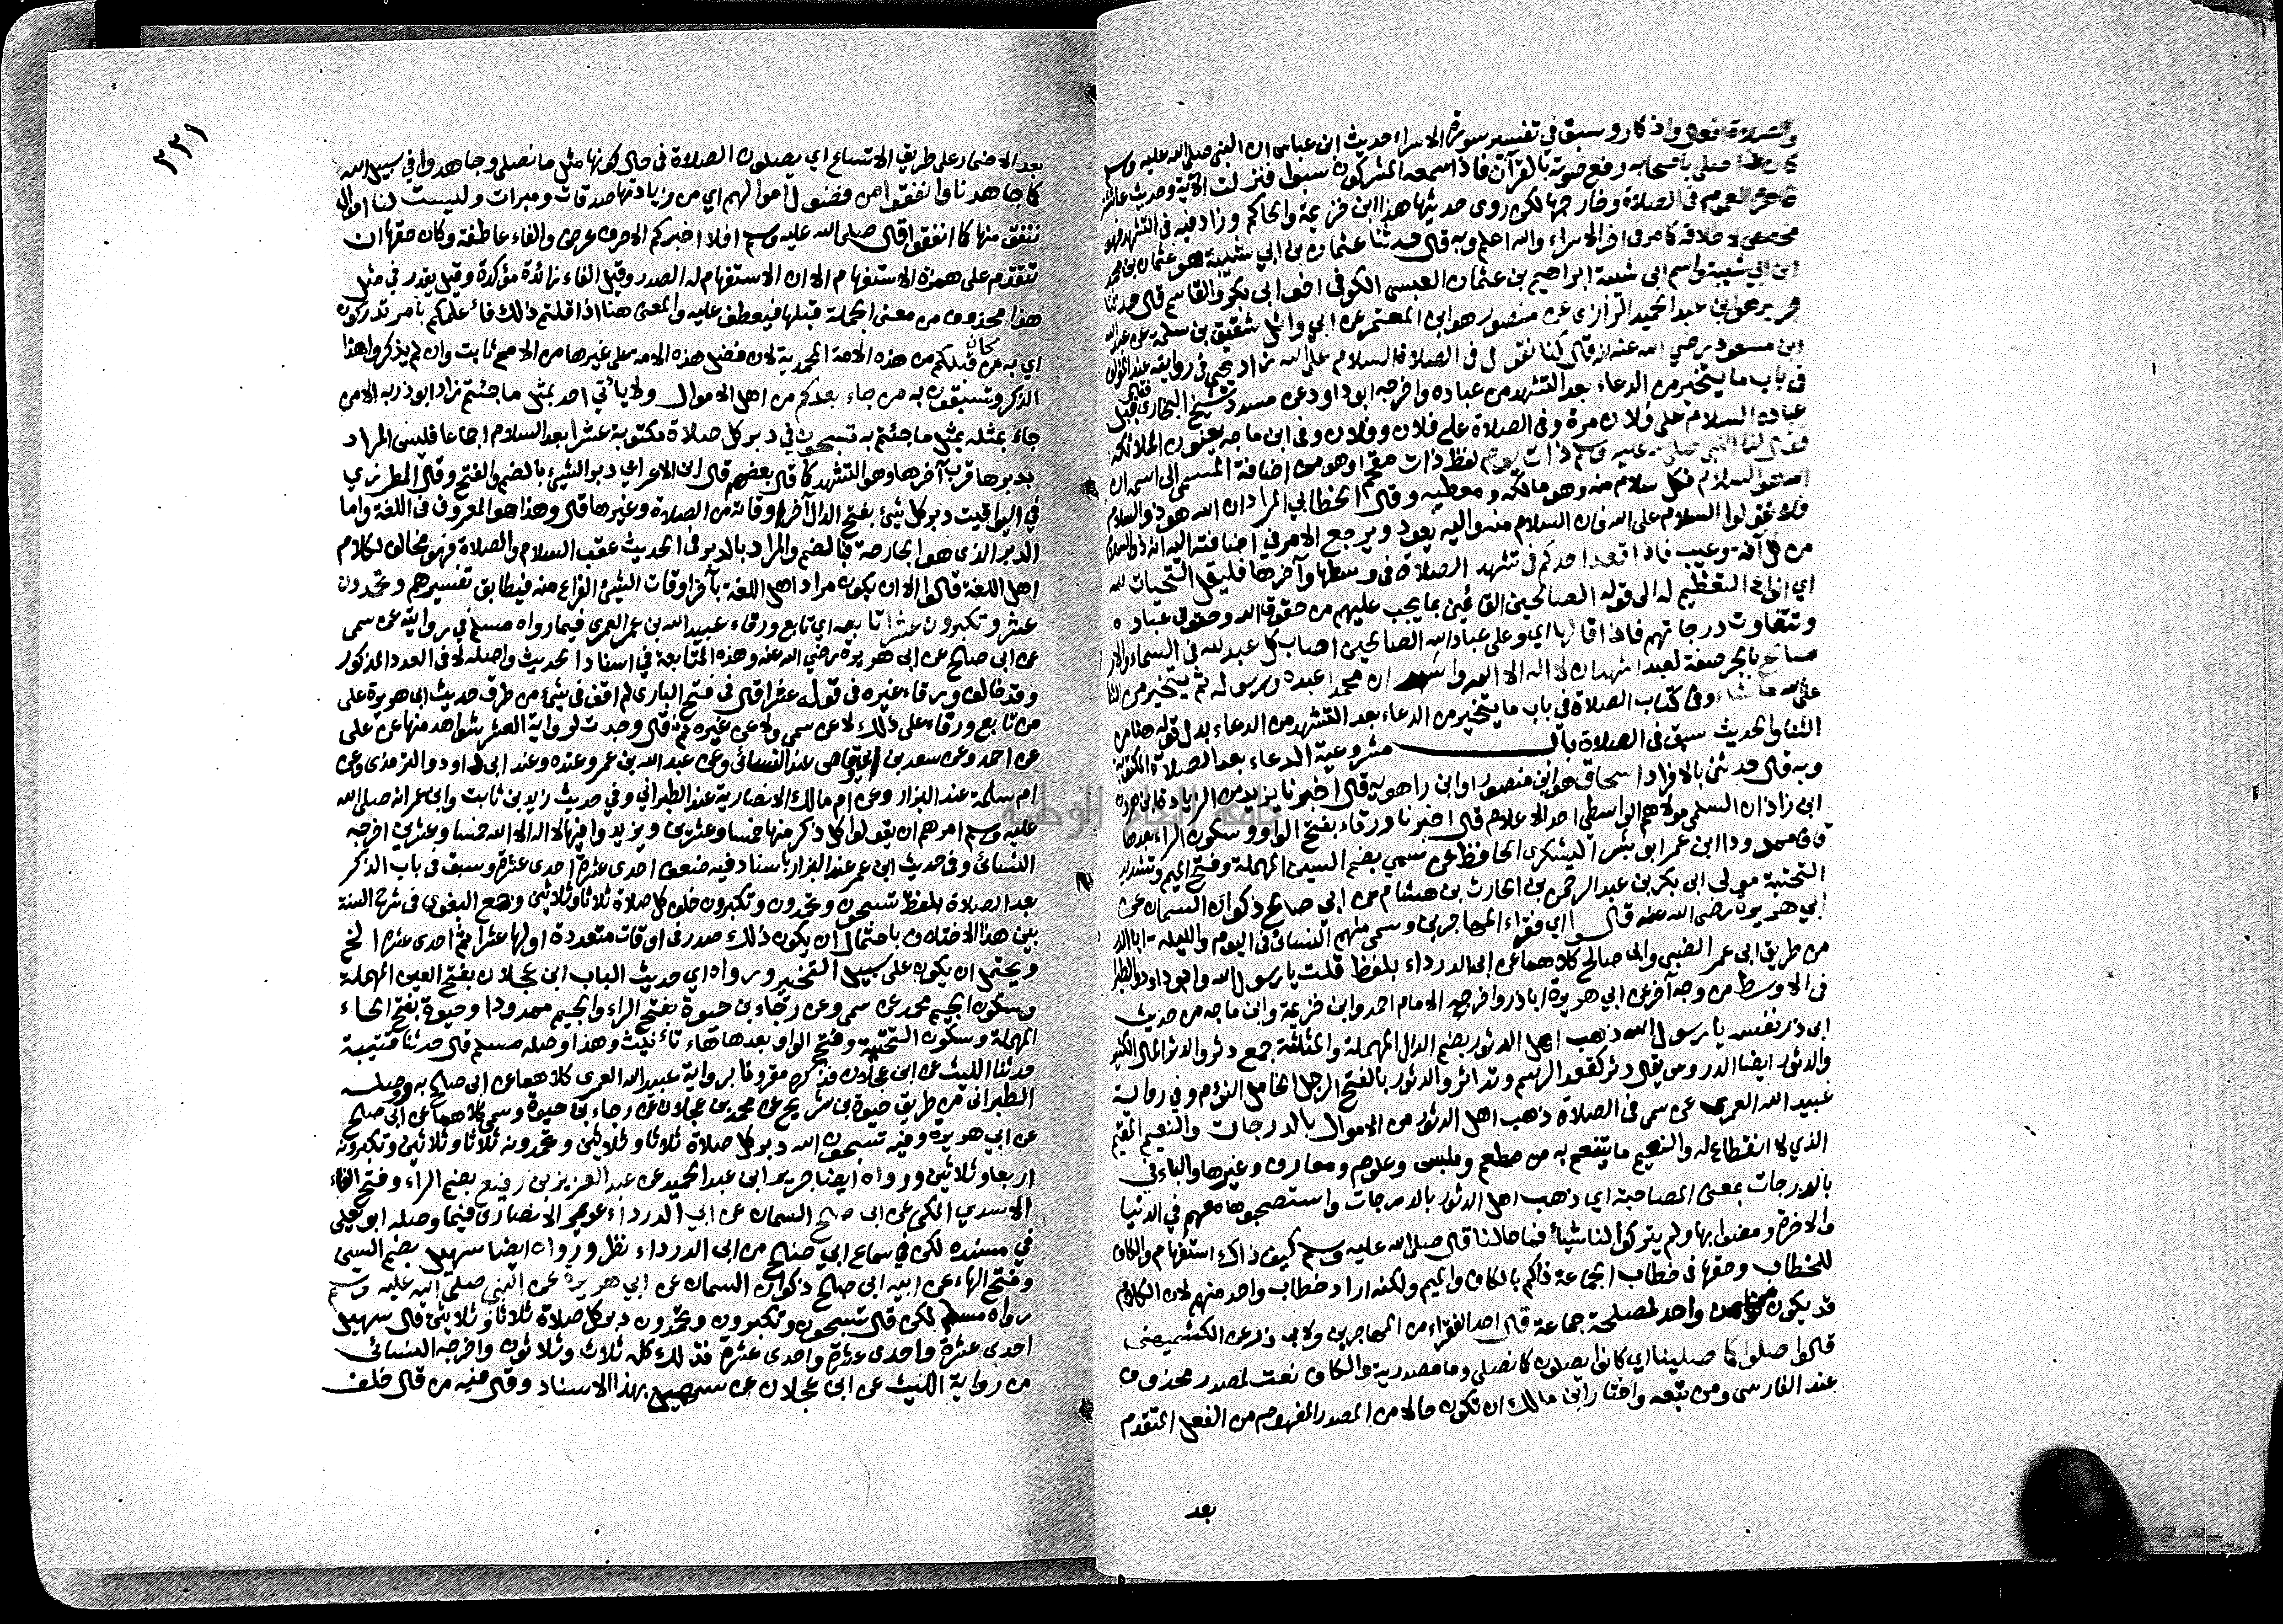 والصلاة فعل واذكار وسبق في تفسير سورة الاسراء حديث ابن عباس ان النبي صلى الله عليه وسلم
كان اذا صلى باصحابه رفع صوته بالقرآن فاذا سمعه المشركون سبوا فنزلت الآية وحديث عائشة
ظاهره العموم في الصلاة وخارجها لكن روى حديثها هذا ابن خزيمة والحاكم وزاد فيه في التشهد فهو
مخصص لاطلاقه كما مر في اخر الاسراء والله اعلم وبه قال حدثنا عثمان بن ابي شيبة هو عثمان بن محمد
ابن ابي شيبة واسم ابي شيبة ابراهيم بن عثمان العبسي الكوفي اخو ابي بكر والقاسم قال حدثنا
جرير هو ابن عبد الحميد الرازي عن منصور هو ابن المعتمر عن ابي وائل شقيق بن سلمة عن عبد الله
ابن مسعود رضي الله عنه انه قال كنا نقول في الصلاة السلام على الله زاد يحيى في روايته عند المؤلف
في باب ما يتخير من الدعاء بعد التشهد من عباده واخرجه ابو داود عن مسدد شيخ البخاري فقال قبل
عباده السلام على فلان مرة وفي الصلاة على فلان وفلان وفي ابن ماجه يعنون الملائكة
فقال لنا النبي صلى عليه وسلم ذات يوم لفظ ذات مقحم او هو من اضافة المسمى الى اسمه ان
الله هو السلام فكل سلام منه وهو مالكه ومعطيه وقال الخطابي المراد ان الله هو ذو السلام
فلا تقولوا السلام على الله فان السلام منه واليه يعود ويرجع الامر في اضافته اليه انه ذو السلام
من كل آفة وعيب فاذا قعد احدكم في تشهد الصلاة في وسطها وآخرها فليقل التحيات لله
اي انواع التعظيم له الى قوله الصالحين القائمين بما يجب عليهم من حقوق الله وحقوق عباده
وتتفاوت درجاتهم فاذا قالها اي وعلى عباد الله الصالحين اصاب كل عبد لله في السماء والارض
صالح بالجر صفة لعبد اشهد ان لا اله الا الله واشهد ان محمدا عبده ورسوله ثم يتخير من الثنا
على الله ما شاء وفي كتاب الصلاة في باب ما يتخير من الدعاء بعد التشهد من الدعاء بدل قوله هنا من
الثنا والحديث سبق في الصلاة باب مشروعية الدعاء بعد الصلاة المكتوبة
وبه قال حدثني بالافراد اسحاق هو ابن منصور او ابن راهويه قال اخبرنا يزيد من الزيادة ابن هرون
ابن زاذان السلمي مولاهم الواسطي احد الاعلام قال اخبرنا ورقاء بفتح الواو وسكون الراء بعدها
قاف ممدودا ابن عمر ابو بشر اليشكري الحافظ عن سمي بضم السين المهملة وفتح الميم وتشديد
التحتية مولى ابي بكر بن عبد الرحمن بن الحارث بن هشام عن ابي صالح ذكوان السمان عن
ابي هريرة رضي الله عنه قالوا اي فقراء المهاجرين وسمى منهم النسائي في اليوم والليلة ابا الدر
من طريق ابي عمر الضبي وابي صالح كلاهما عن ابي الدرداء بلفظ قلت يا رسول الله وابو داود والطبر
في الاوسط من وجه آخر عن ابي هريرة ابا ذر واخرجه الامام احمد وابن خزيمة وابن ماجه من حديث
ابي ذر نفسه يا رسول الله ذهب اهل الدثور بضم الدال المهملة والمثلثة جمع دثر والدثر المال الكثير
والدثور ايضا الدروس يقال دثر كقعد الرسم وتداثر والدثور بالفتح الرجل الخامل النؤم وفي رواية
عبيد الله العمري عن سمي في الصلاة ذهب اهل الدثور من الاموال بالدرجات والنعيم المقيم
الذي لا انقطاع له والنعيم ما يتنعم به من مطعم وملبس وعلوم ومعارف وغيرها والباء في
بالدرجات بمعنى المصاحبة اي ذهب اهل الدثور بالدرجات واستصحبوها معهم في الدنيا
والاخرة ومضوا بها ولم يتركوا لنا شيئا فما حالنا قال صلى الله عليه وسلم كيف ذاك استفهام والكاف
للخطاب وحقها في خطاب الجماعة ذاكم بالكاف والميم ولكنه اراد خطاب واحد منهم لان الكلام
قد يكون من واحد لمصلحة جماعة قال احد الفقراء من المهاجرين ولابي ذر عن الكشميهني
قالوا صلوا كما صلينا اي كانوا يصلون كما نصلي وما مصدرية والكاف نعت لمصدر محذوف
عند الفارسي ومن تبعه واختار ابن مالك ان تكون حالا من المصدر المفهوم من الفعل المتقدم
بعد
٢٢٩
بعد الاضمار على طريق الاتساع اي يصلون الصلاة في حال كونها مثل ما نصلي وجاهدوا في سبيل الله
كما جاهدنا وانفقوا من فضول اموالهم اي من زيادتها صدقات ومبرات وليست لنا اموال
ننفق منها كما انفقوا قال صلى الله عليه وسلم افلا اخبركم الاحرف عرض والفاء عاطفة وكان حقها ان
تتقدم على همزة الاستفهام الا ان الاستفهام له الصدر وقيل الفاء زائدة مؤكدة وقيل يقدر في مثل
هذا محذوف من معنى الجملة قبلها فيعطف عليه والمعنى هنا اذا قلتم ذلك فأعلمكم بأمر تدركون
اي به من كان قبلكم من هذه الامة المحمدية لان فضل هذه الامة على غيرها من الامم ثابت وان لم يذكروا هذا
الذكر وتسبقون به من جاء بعدكم من اهل الاموال ولا يأتي احد بمثل ما جئتم زاد ابو ذر به الا من
جاء بمثله بمثل ما جئتم به تسبحون في دبر كل صلاة مكتوبة عشرا بعد السلام اجماعا فليس المراد
بدبرها قرب آخرها وهو التشهد كما قال بعضهم قال ابن الاعرابي دبر الشيئ بالضم والفتح وقال المطرزي
في اليواقيت دبر كل شيئ بفتح الدال آخر اوقاته من الصلاة وغيرها قال وهذا هو المعروف في اللغة واما
الدبر الذي هو الجارحة فبالضم والمراد بالدبر في الحديث عقب السلام والصلاة فهو مخالف لكلام
اهل اللغة قالوا الا ان يكون مراد اهل اللغة بآخر اوقات الشيئ الفراغ منه فيطابق تفسيرهم وتحمدون
عشرا وتكبرون عشرا تابعه اي تابع ورقاء عبيد الله بن عمر العمري فيما رواه مسلم في روايته عن سمي
عن ابي صالح عن ابي هريرة رضي الله عنه وهذه المتابعة في اسناد الحديث واصله لا في العدد المذكور
وقد خالف ورقاء غيره في قوله عشرا قال في فتح الباري لم اقف في شيئ من طرق حديث ابي هريرة على
من تابع ورقاء على ذلك لا عن سمي ولا عن غيره ثم قال وجدت لرواية العشر شواهد منها عن علي
عن احمد وعن سعد بن ابي وقاص عند النسائي وعن عبد الله بن عمرو عنده وعند ابي داود والترمذي وعن
ام سلمة عند البزار وعن ام مالك الانصارية عند الطبراني وفي حديث زيد بن ثابت وابن عمر انه صلى الله
عليه وسلم امرهم ان يقولوا كل ذكر منها خمسا وعشرين ويزيدوا فيها لا اله الا الله خمسا وعشرين اخرجه
النسائي وفي حديث ابن عمر عند البزار باسناد فيه ضعف احدى عشرة احدى عشرة وسبق في باب الذكر
بعد الصلاة بلفظ تسبحون وتحمدون وتكبرون خلف كل صلاة ثلاثا وثلاثين وجمع البغوي في شرح السنة
بين هذا الاختلاف باحتمال ان يكون ذلك صدر في اوقات متعددة اولها عشرا ثم احدى عشرة الخ
ويحتمل ان يكون على سبيل التخيير ورواه اي حديث الباب ابن عجلان بفتح العين المهملة
وسكون الجيم محمد عن سمي وعن رجاء بن حيوة بفتح الراء والجيم ممدودا وحيوة بفتح الحاء
المهملة وسكون التحتية وفتح الواو بعدها هاء تأنيث وهذا وصله مسلم قال حدثنا قتيبة
حدثنا الليث عن ابن عجلان فذكره مقرونا برواية عبيد الله العمري كلاهما عن ابي صالح به ووصله
الطبراني من طريق حيوة بن شريح عن محمد بن عجلان عن رجاء بن حيوة وسمي كلاهما عن ابي صالح
عن ابي هريرة وفيه تسبحون الله دبر كل صلاة ثلاثا وثلاثين وتحمدونه ثلاثا وثلاثين وتكبرونه
اربعا وثلاثين ورواه ايضا جرير ابن عبد الحميد عن عبد العزيز بن رفيع بضم الراء وفتح الفاء
الاسدي المكي عن ابي صالح السمان عن ابي الدرداء عويمر الانصاري فيما وصله ابو يعلى
في مسنده لكن في سماع ابي صالح من ابي الدرداء نظر ورواه ايضا سهيل بضم السين
وفتح الهاء عن ابيه ابي صالح ذكوان السمان عن ابي هريرة عن النبي صلى الله عليه وسلم
رواه مسلم لكن قال تسبحون وتكبرون وتحمدون دبر كل صلاة ثلاثا وثلاثين قال سهيل
احدى عشرة واحدى عشرة واحدى عشرة فذلك كله ثلاث وثلاثون واخرجه النسائي
من رواية الليث عن ابن عجلان عن سهيل بهذا الاسناد وقال فيه من قال خلف